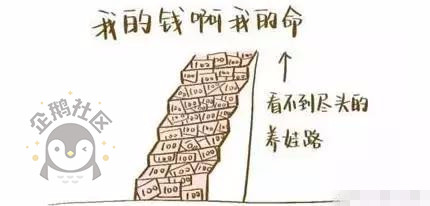 我的钱啊我的命
企鹅社区
看不到尽头的
养娃路
100 100 100
100 100 100
100 100 100
100 100 100
100 100 100
100 100 100
100 100 100
100 100 100
100 100 100